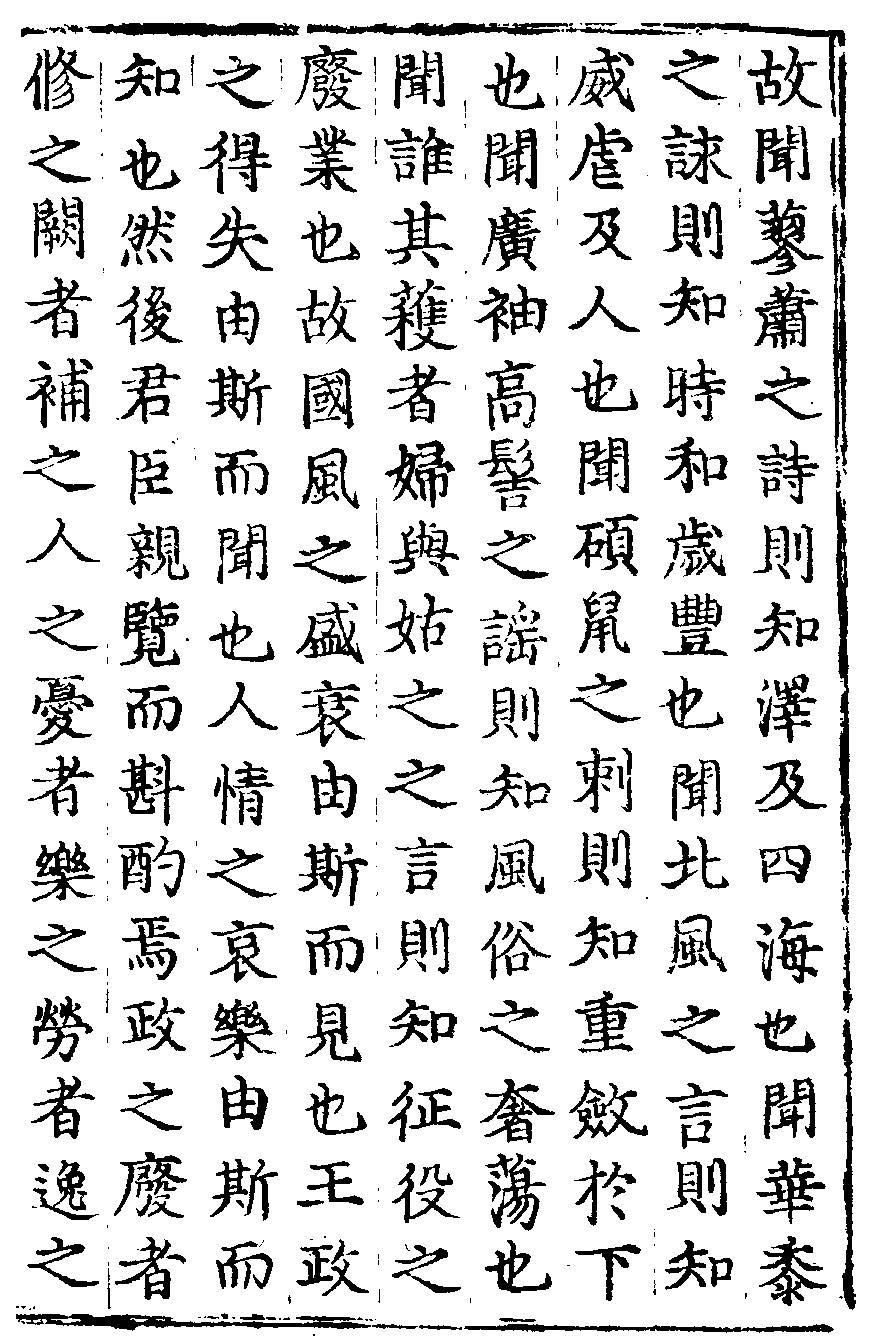 故聞蓼蕭之詩則知澤及四海也聞華黍
之詠則知時和歲豐也聞北風之言則知
威虐及人也聞碩鼠之刺則知重斂於下
也聞廣袖高髻之謡則知風俗之奢蕩也
聞誰其穫者婦與姑之之言則知征役之
廢業也故國風之盛衰由斯而見也王政
之得失由斯而聞也人情之哀樂由斯而
知也然後君臣親覽而斟酌焉政之廢者
修之闕者補之人之憂者樂之勞者逸之